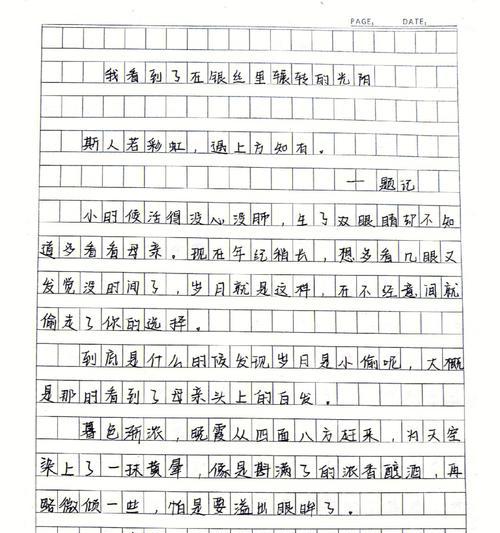 PAGE: DATE:
我看到了在银丝里辗转的光阳
斯人若彩虹，遇上方知有。
一题记
小时候活得没心没肺，生了双眼睛却不知
道多看看母亲。现在年纪稍长，想多看几眼又
发觉没时间了，岁月就是这样，在不经意间就
偷走了你的选择。
到底是什么时候发现岁月是小偷呢，大概
是那时看到了母亲头上的白发。
暮色渐浓，晚霞从四面八方赶来，为天空
染上了一抹黄晕，像是斟满了的浓香醇酒，再
略微倾一些，怕是要溢出眼眸了。